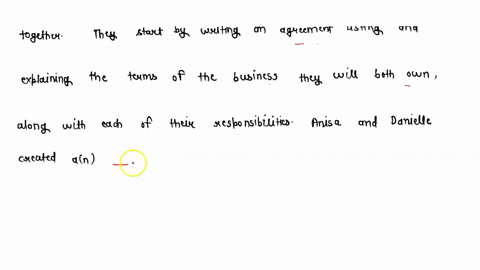 together. They start by writing an agreement listing and
explaining the terms of the business they will both own,
along with each of their responsibilities. Anisa and Danielle
created a(n) __.